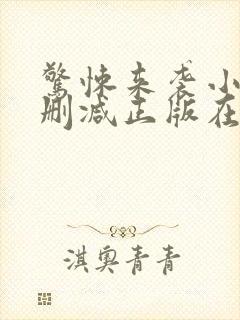 驚悚来袭小
删减正版在
淇奥青青